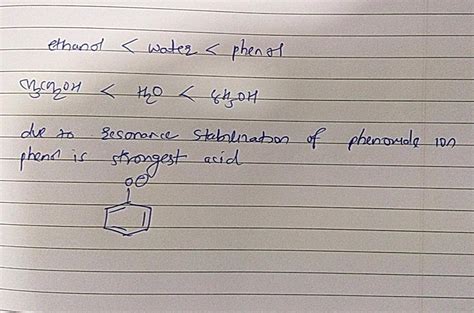 ethanol < water < phenol
CH3CH2OH < H2O < C6H5OH
due to resonance stabilination of phenoxide ion
phenol is strongest acid
O⊖